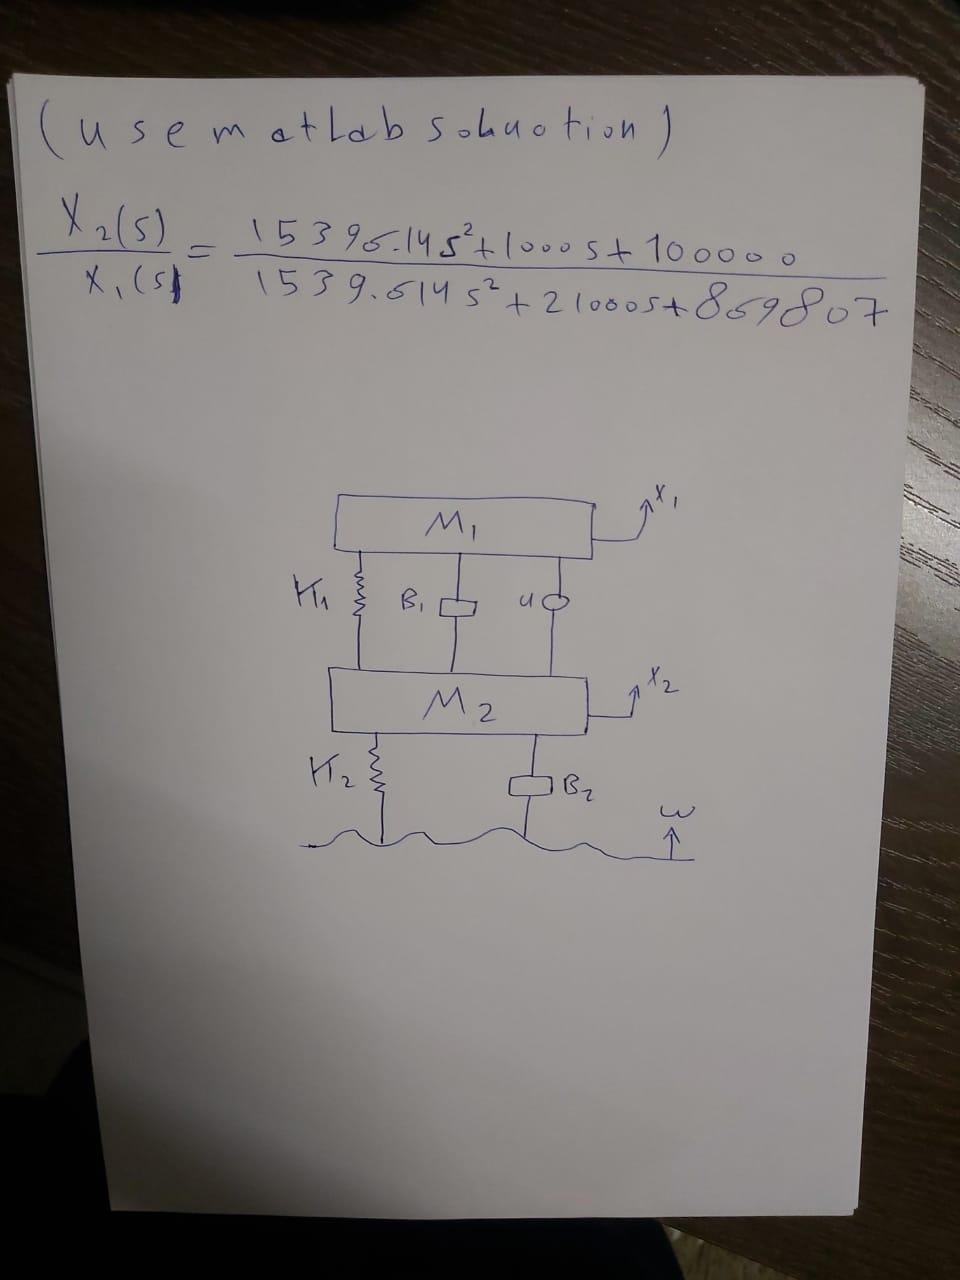 (use matlab soluotion)
X₂(s)
X₁(s)
=
15396.14s²+1000s+100000
1539.614s²+21000s+869807
M₁
X₁
K₁
B₁
u
M₂
X₂
K₂
B₂
ω